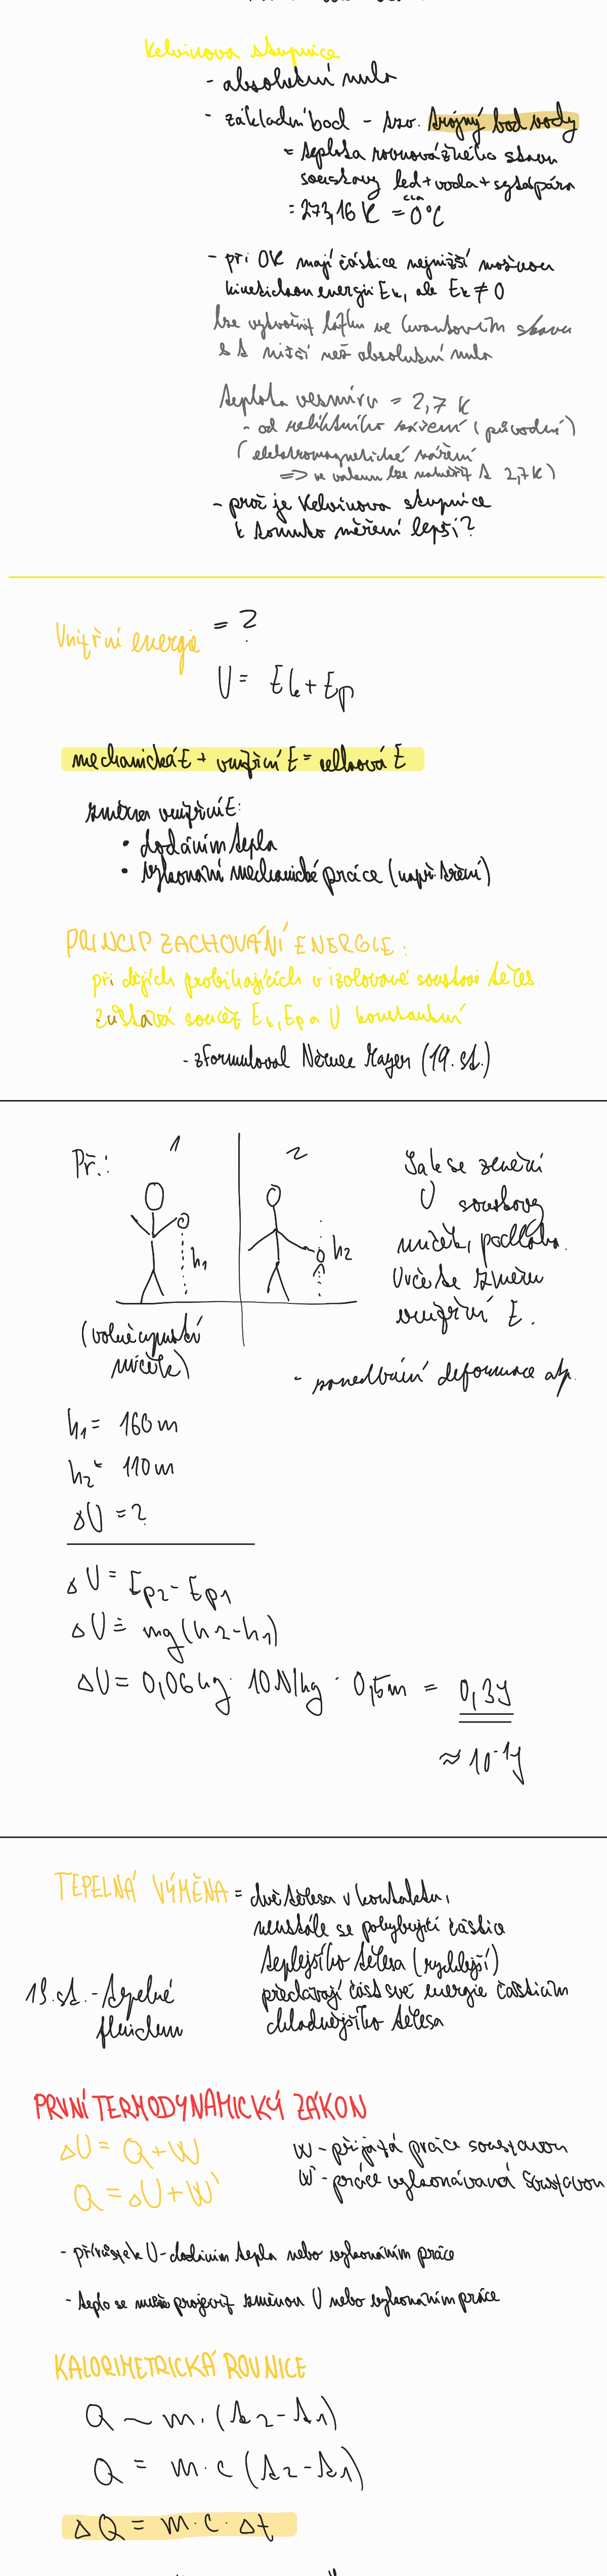 Kelvinova stupnice
- absolutní nula
- základní bod - tzv. trojný bod vody
= teplota rovnovážného stavu
soustavy led + voda + sytá pára
= 273,16 K = 0°C
cca
- při 0K mají částice nejnižší možnou
kinetickou energii Ek, ale Ek ≠ 0
lze vytvořit látku ve kvantovém stavu
s t nižší než absolutní nula
teplota vesmíru = 2,7 K
- od reliktního záření (původní)
(elektromagnetické záření
=> ve vakuu lze naměřit t 2,7 K)
- proč je Kelvinova stupnice
k tomuto měření lepší?
Vnitřní energie = ?
U = Ek + Ep
mechanická E + vnitřní E = celková E
změna vnitřní E:
• dodáním tepla
• vykonání mechanické práce (např. tření)
PRINCIP ZACHOVÁNÍ ENERGIE:
při dějích probíhajících v izolované soustavě těles
zůstává součet Ek, Ep a U konstantní
- zformuloval Němec Mayer (19. st.)
Př.: 1 2
h1 h2
(volně upustí
míček)
Jak se změní
U soustavy
míček, podlaha.
Určete změnu
vnitřní E.
- zanedbání deformace atp.
h1 = 160 m
h2 = 110 m
ΔU = ?
ΔU = Ep2 - Ep1
ΔU = mg(h2-h1)
ΔU = 0,06 kg · 10 N/kg · 0,5 m = 0,3 J
≈ 10⁻¹ J
TEPELNÁ VÝMĚNA = dvě tělesa v kontaktu,
neustále se pohybující částice
teplejšího tělesa (rychlejší)
předávají část své energie částicím
chladnějšího tělesa
19. st. - tepelné
fluidum
PRVNÍ TERMODYNAMICKÝ ZÁKON
ΔU = Q + W
Q = ΔU + W'
W - přijatá práce soustavou
W' - práce vykonávaná soustavou
- přírůstek U - dodáním tepla nebo vykonáním práce
- teplo se může projevit změnou U nebo vykonáním práce
KALORIMETRICKÁ ROVNICE
Q ~ m · (t2 - t1)
Q = m · c (t2 - t1)
ΔQ = m · c · Δt